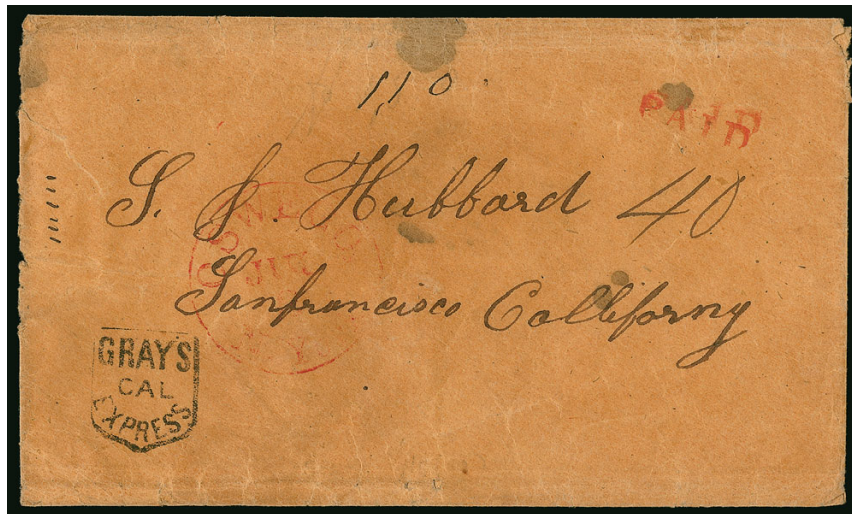 110
PAID
S. J. Hubbard 40
Sanfrancisco Calliforny
OSWEGO
JUL
N.Y.
GRAY'S
CAL
EXPRESS